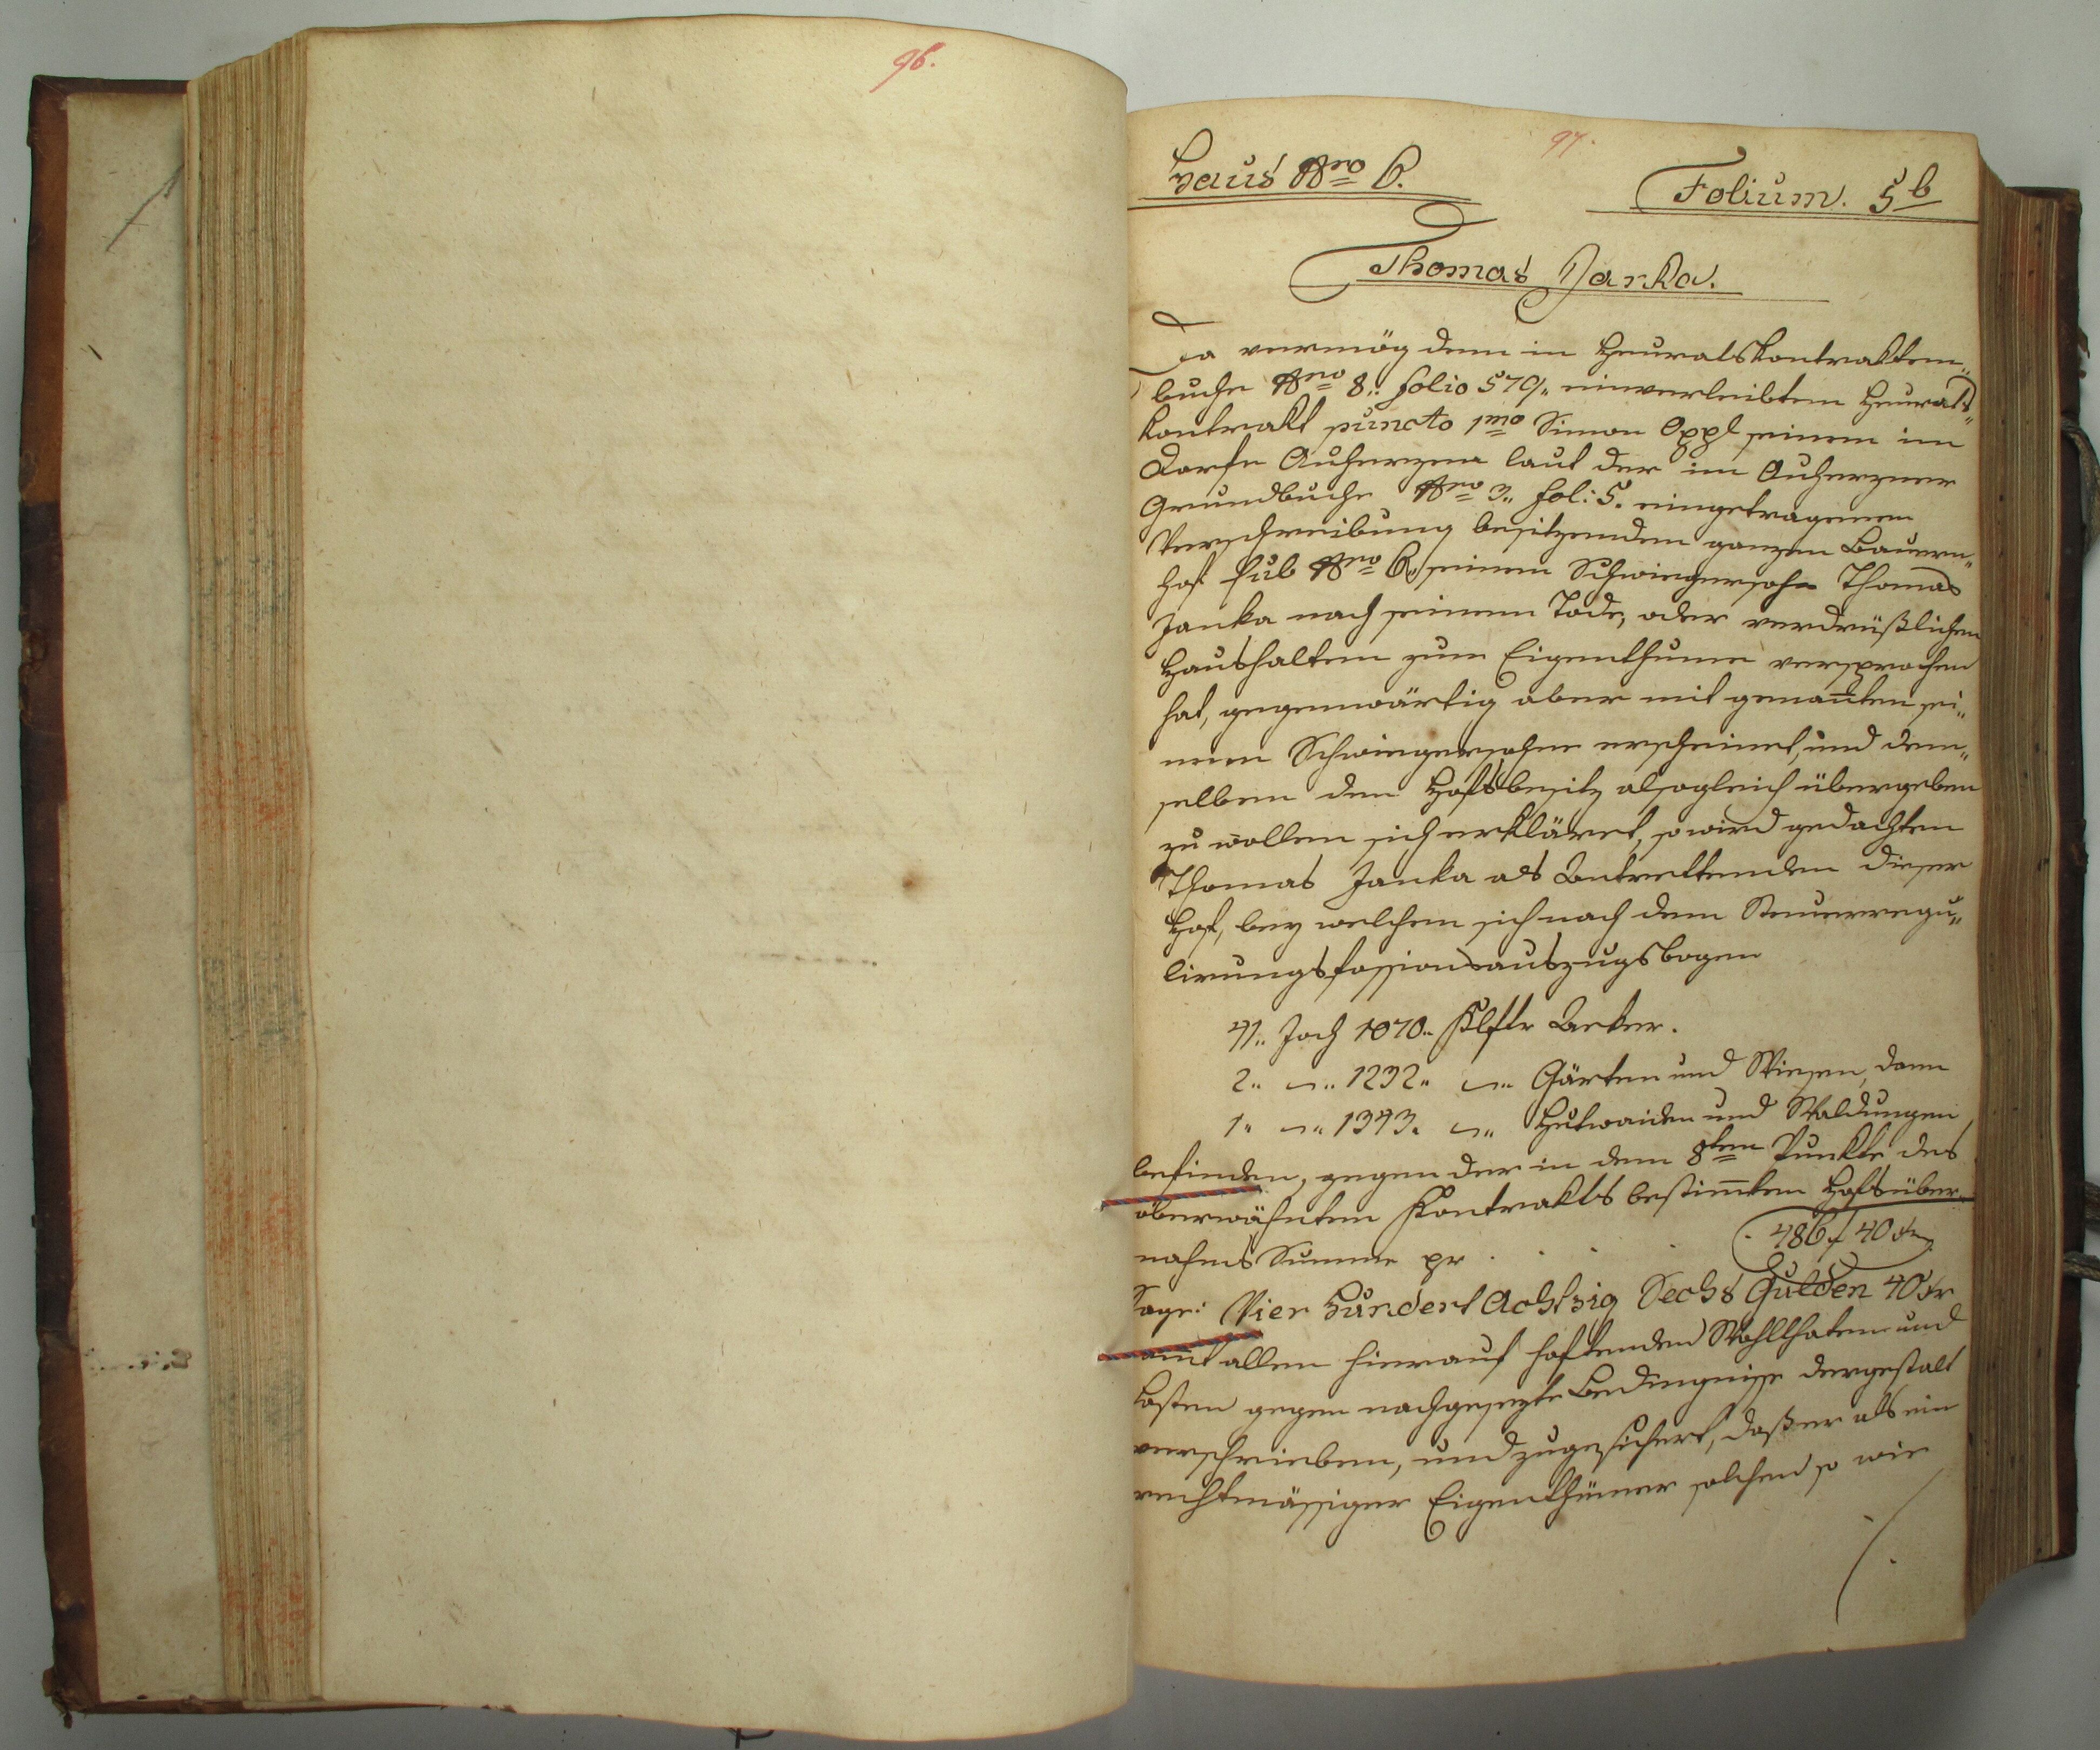 96.
97.
Haus Nro 6.
Folium. 5b
Thomas Janka.
Da vermög dem in Heuratskontrakten„
buche Nro 8.. folio 579.. einverleibten Heurats„
kontrakt puncto 1mo Simon Oppl seinen im
Dorfe Auherzen laut der im Auherzner
Grundbuche Nro 3.. fol: 5. eingetragenen
Verschreibung besitzenden ganzen Bauern„
hof sub Nro 6.. seinem Schwiegersohn Thomas
Janka nach seinem Tode, oder verdrüßlichen
Haushalten zum Eigenthume versprochen
hat, gegenwärtig aber mit genañten sei„
nem Schwiegersohne erscheinet, und dem„
selben den Hofsbesitz alsogleich übergeben
zu wollen sich erkläret, so wird gedachten
Thomas Janka als Antrettenden dieser
Hof, bey welchem sich nach dem Steuerregu„
lirungsfassionsauszugsbogen
41.. Joch 1070.. Klftr Aeker.
2.. 〃.. 1232.. 〃.. Gärten und Wiesen, dann
1.. 〃.. 1393. 〃.. Hutwaiden und Waldungen
befinden, gegen der in dem 8ten Punkte des
oberwähnten Kontrakts bestim̃ten Hofsüber„
nahms Summe pr . . . . 486 f 40 kr
Sage: Vier Hundert Achtzig Sechs Gulden 40 kr
sam̃t allen hierauf haftenden Wohlthaten und
Lasten gegen nachgesezte Bedingnisse dergestalt
verschrieben, und zugesichert, daß er als ein
rechtmässiger Eigenthümer solchen so wie